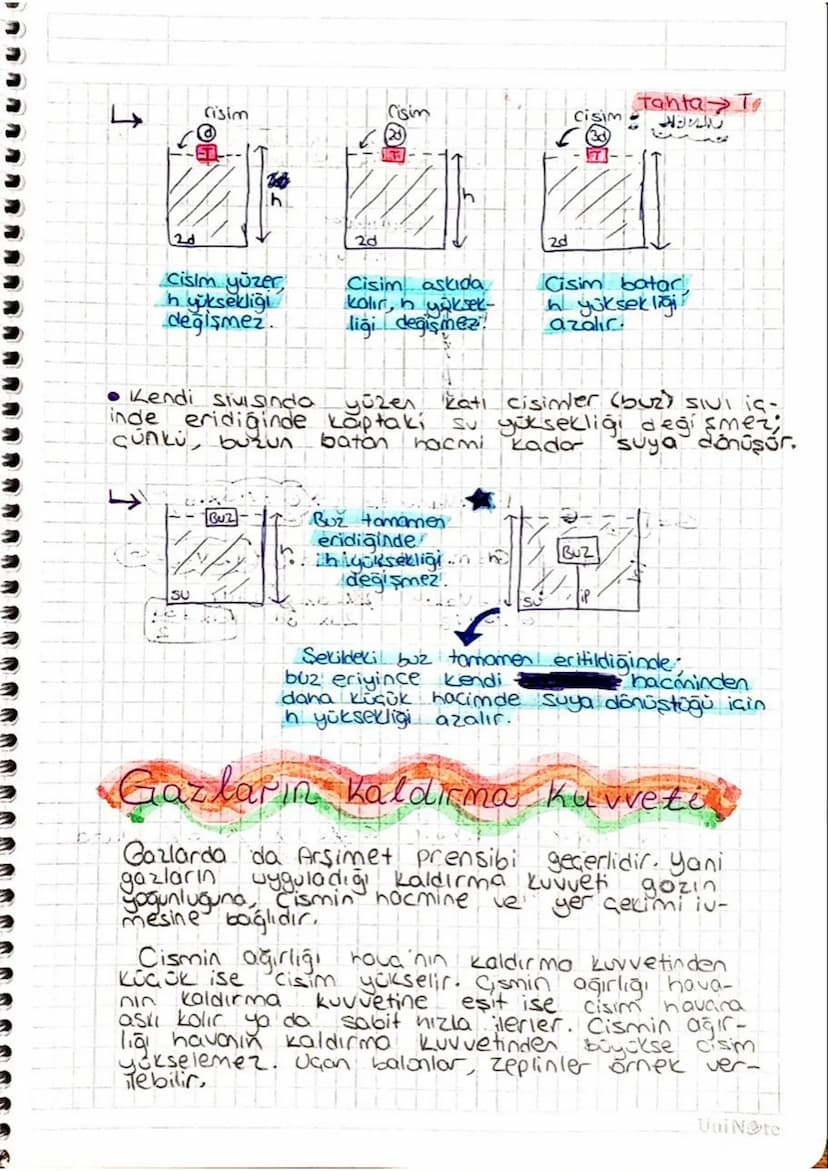 Tahta → T
Cisim
Cisim
Cisim
d
2d
3d
T
T
T
h
h
2d
2d
2d
Cisim yüzer,
h yüksekliği
değişmez.
Cisim askıda
kalır, h yüksek-
liği değişmez.
Cisim batar,
h yüksekliği
azalır.
• Kendi sıvısında yüzen katı cisimler (buz) sıvı iç-
inde eridiğinde kaptaki su yüksekliği değişmez;
çünkü, buzun batan hacmi kadar suya dönüşür.
BUZ
h
su
Buz tamamen
eridiğinde
h yüksekliği
değişmez.
h
BUZ
su
ip
Şekildeki buz tamamen eritildiğinde;
buz eriyince kendi hacminden
daha küçük hacimde suya dönüştüğü için
h yüksekliği azalır.
Gazların Kaldırma Kuvveti
Gazlarda da Arşimet prensibi geçerlidir. Yani
gazların uyguladığı kaldırma kuvveti gazın
yoğunluğuna, cismin hacmine ve yer çekimi iv-
mesine bağlıdır.
Cismin ağırlığı hava'nın kaldırma kuvvetinden
küçük ise cisim yükselir. Cismin ağırlığı hava-
nın kaldırma kuvvetine eşit ise cisim havara
askı kalır ya da sabit hızla ilerler. Cismin ağır-
lığı havanın kaldırma kuvvetinden büyükse cisim
yükselemez. Uçan balonlar, zeplinler örnek ver-
ilebilir.
UniNote